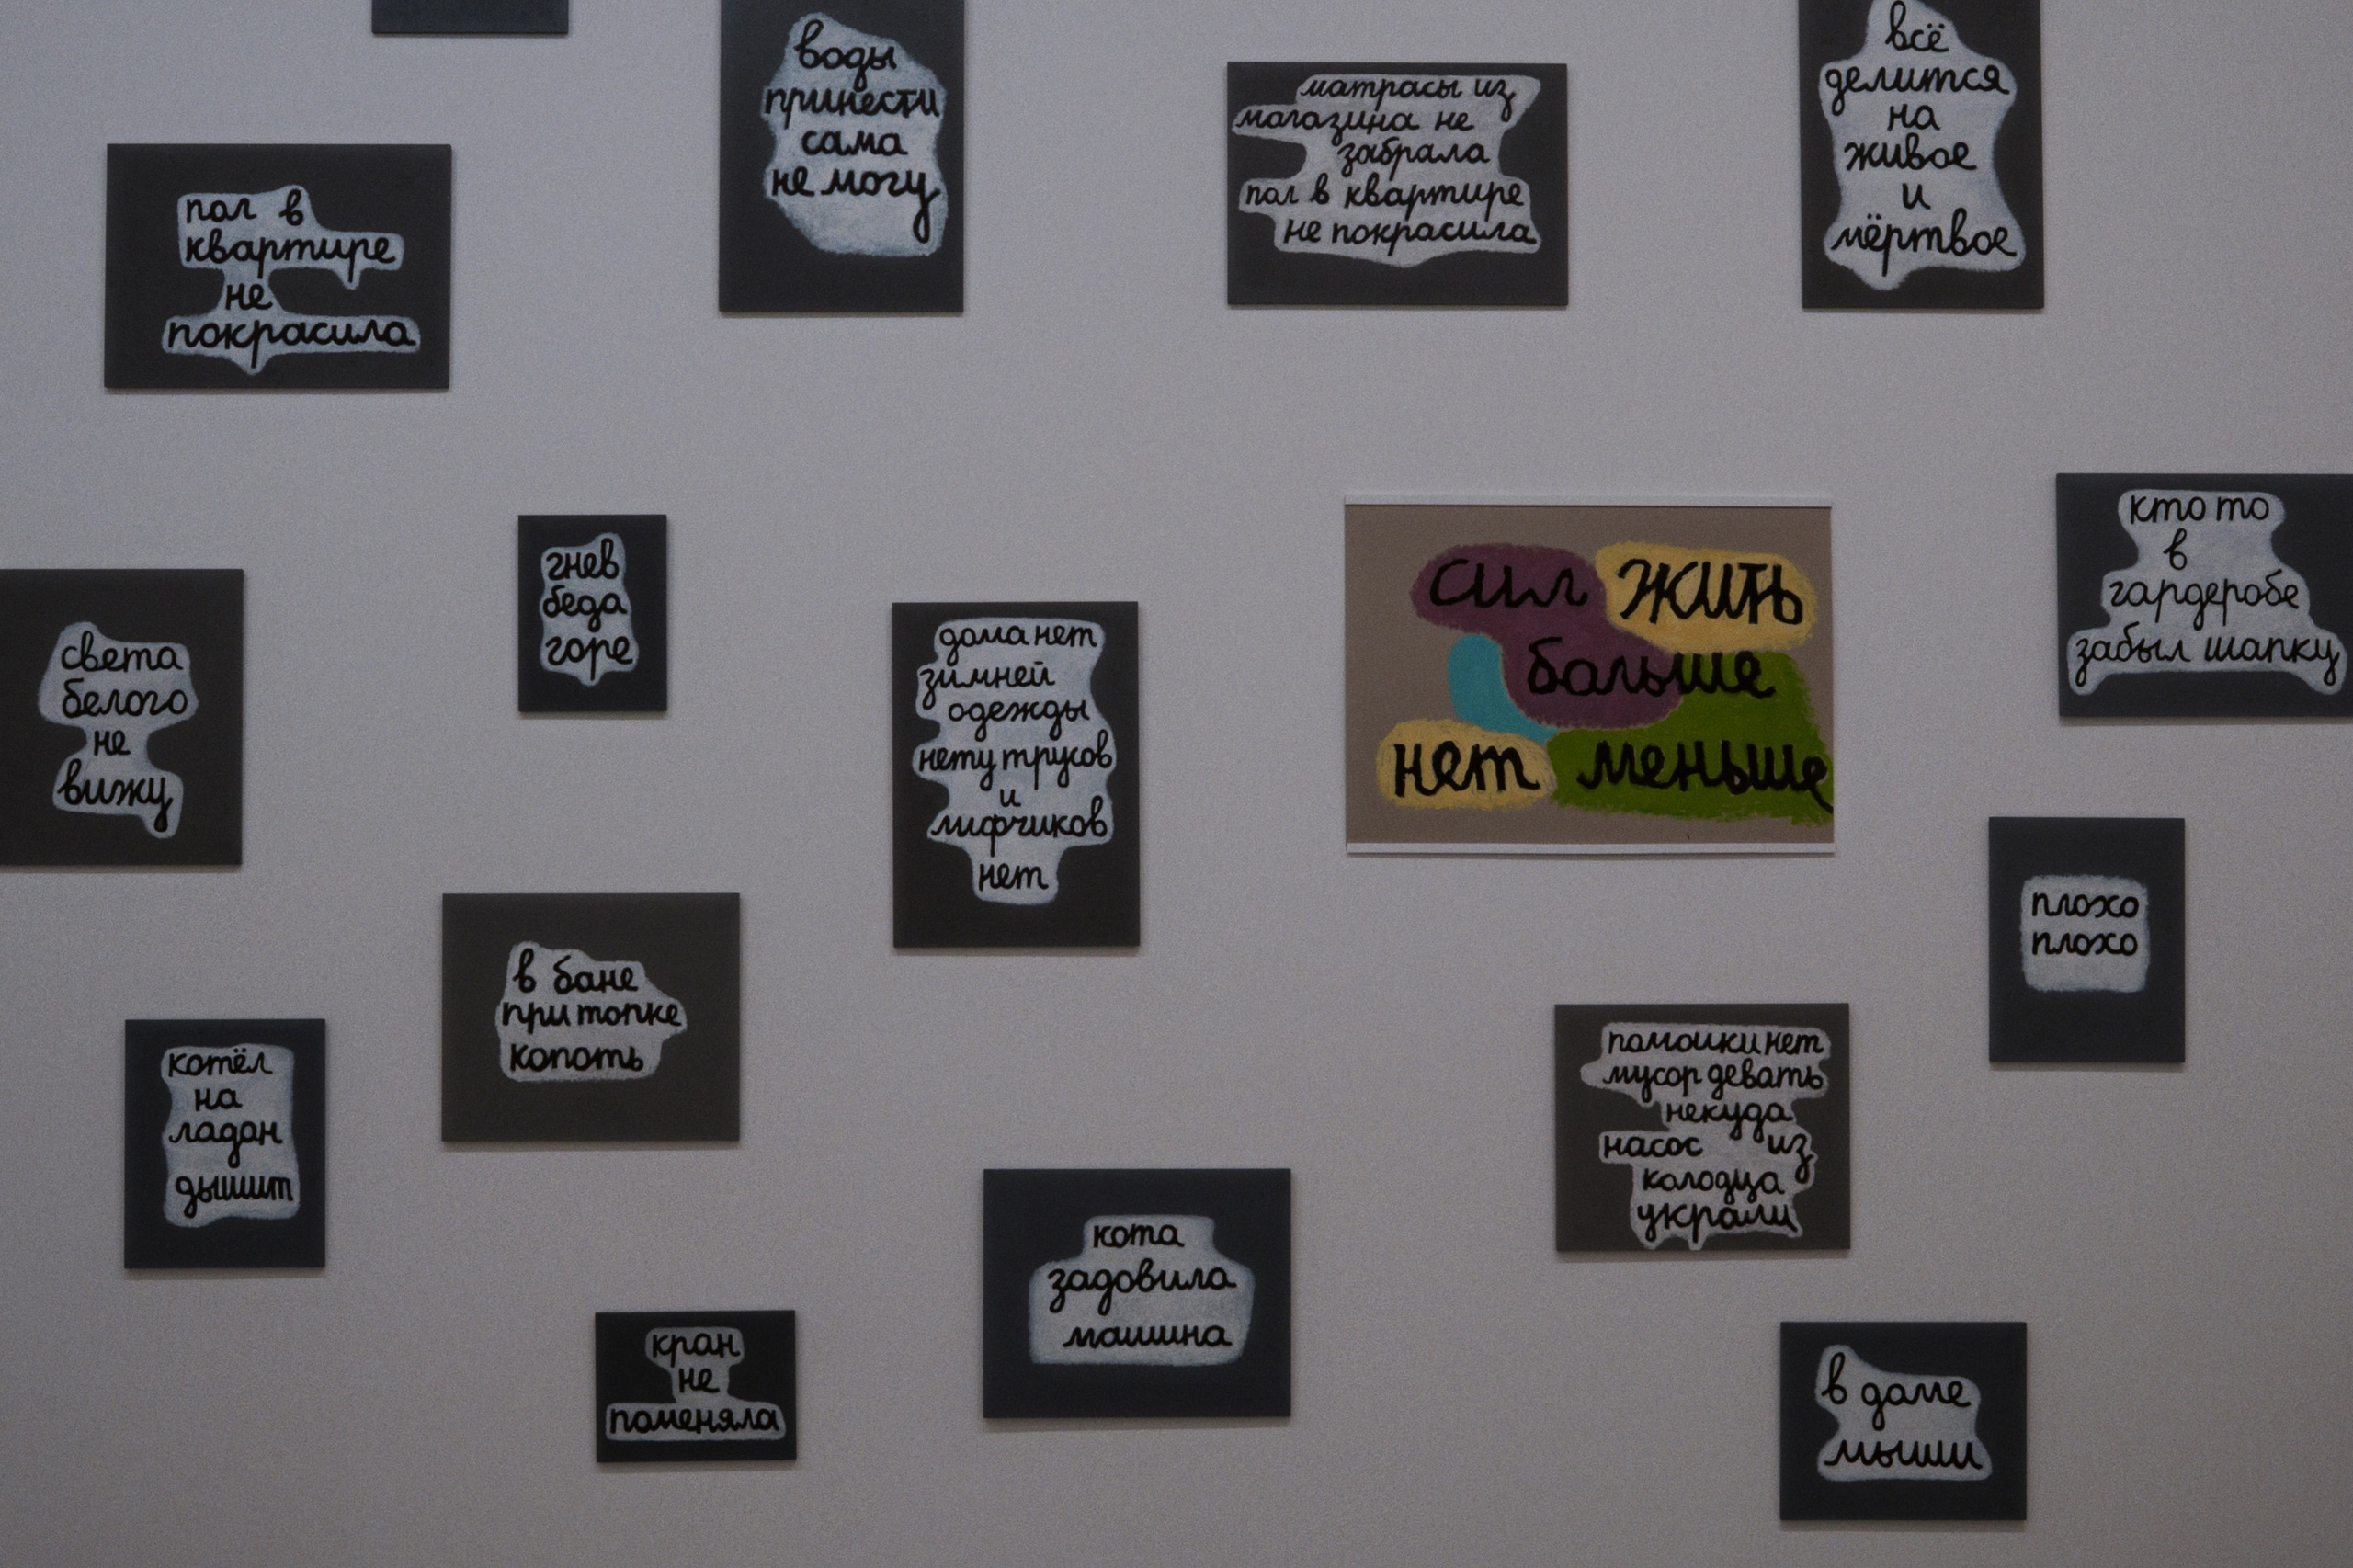 воды
принести
сама
не могу
матрасы из
магазина не
забрала
пол в квартире
не покрасила
всё
делится
на
живое
и
мёртвое
пол в
квартире
не
покрасила
кто то
в
гардеробе
забыл шапку
гнев
беда
горе
сил жить
больше
нет меньше
света
белого
не
вижу
дома нет
зимней
одежды
нету трусов
и
лифчиков
нет
плохо
плохо
в бане
при топке
копоть
помойки нет
мусор девать
некуда
насос из
колодца
украли
котёл
на
ладан
дышит
кота
задовила
машина
кран
не
поменяла
в доме
мыши